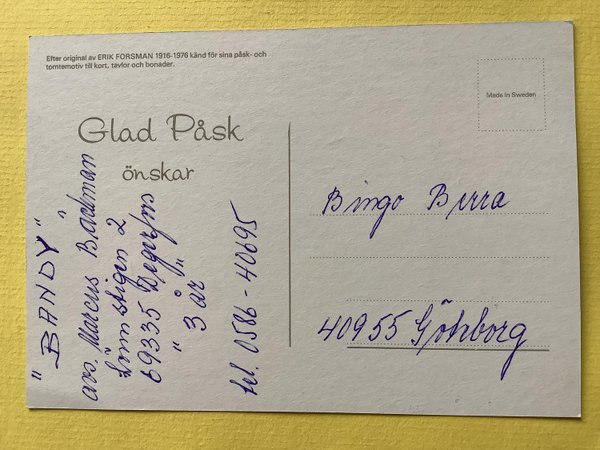 Efter original av ERIK FORSMAN 1916-1976 känd för sina påsk- och
tomtemotiv till kort, tavlor och bonader.
Made in Sweden
Glad Påsk
önskar
"BANDY"
avs. Marcus Backman
Lönnstigen 2
69335 Degerfors
"3 år"
tel. 0586-40695
Bingo Berra
40955 Göteborg